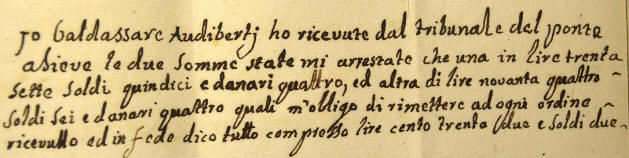 Jo Baldassare Audibertj ho ricevute dal tribunale del ponte
asieve le due somme state mi arrestate che una in lire trenta
sette soldi quindici e danari quattro, ed altra di lire novanta quattro
soldi sei e danari quattro quali m'obligo di rimettere ad ogni ordine
ricevutto ed in fede dico tutto compresso lire cento trenta due e soldi due